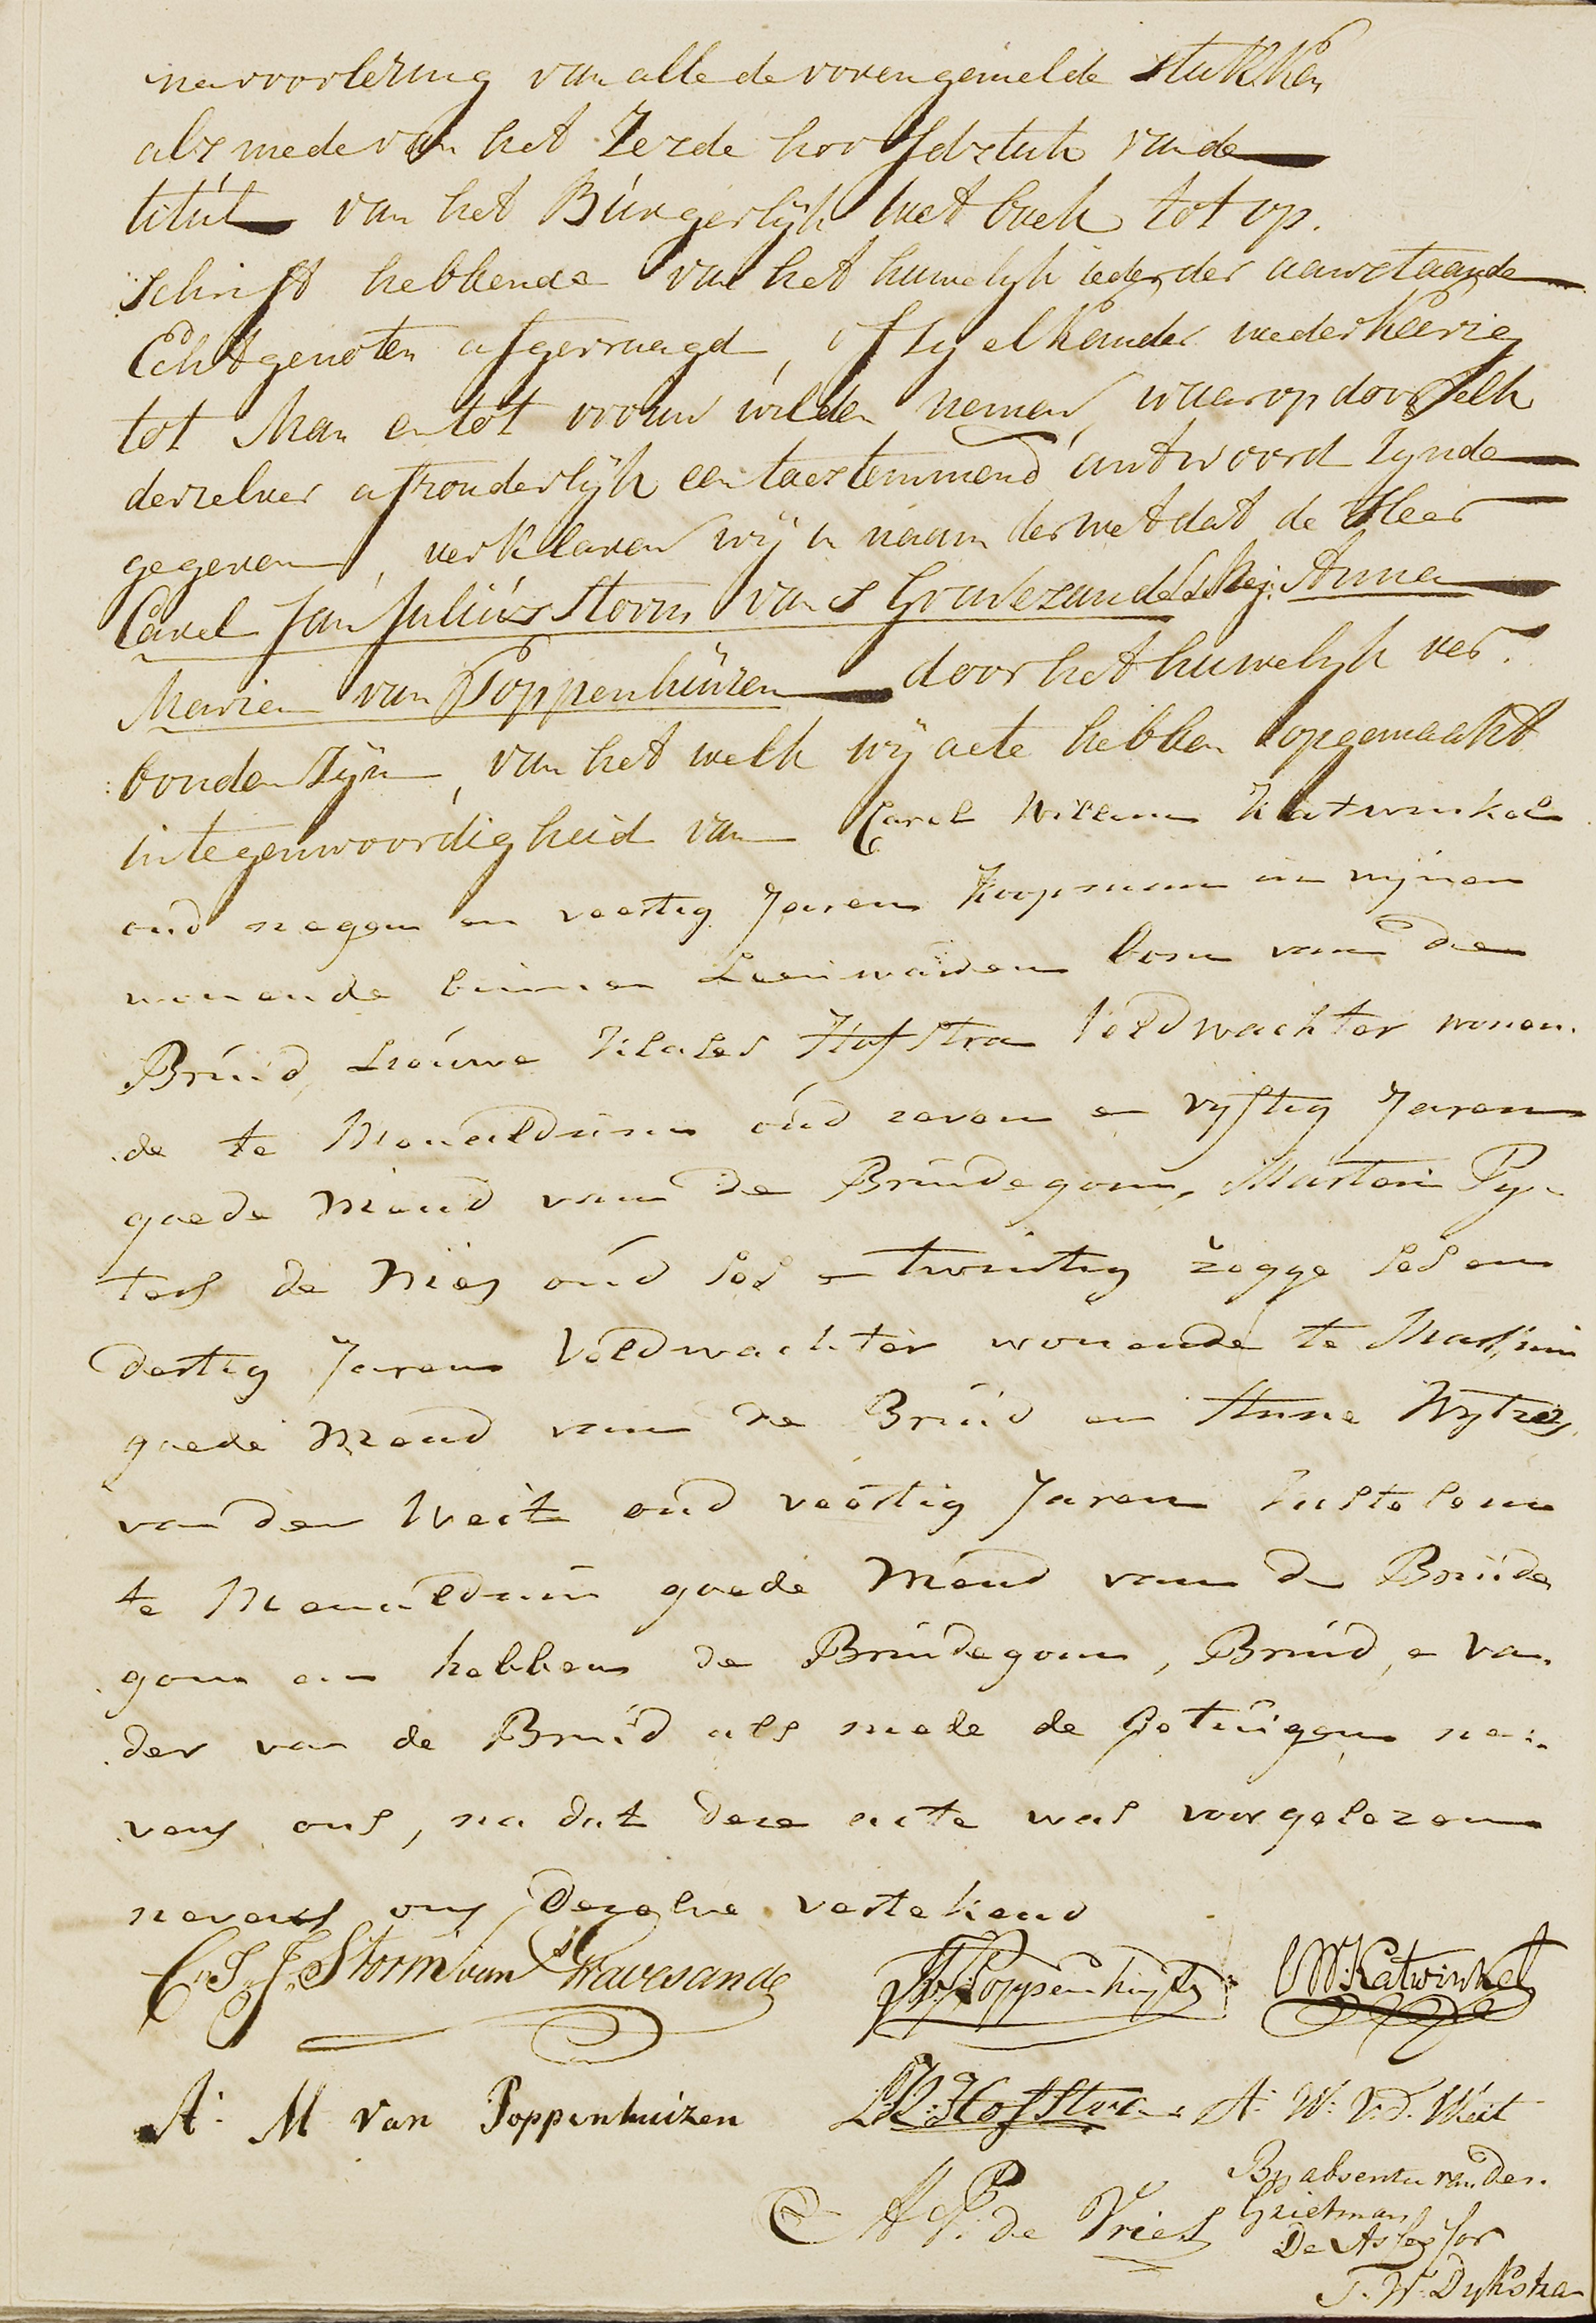 na voorlezing van alle de vorengemelde stukken
als mede van het Zesde hoofdstuk van de
titul van het Burgerlyk wetboek tot op.
schrift hebbende van het huwelyk ieder der aanstaande
Echtgenoten afgevraagd, of zy elkander wederkeerig
tot Man en tot vrouw wilden nemen, waarop door elk
derzelver afzonderlyk een toestemmend antwoord zynde
gegeven, verklaren wy in naam der wet dat de Heer
Carel Jan Julius Storm van s Gravezande & Mej: Anna
Maria van Poppenhuizen door het huwelyk ver.
bonden zyn, van het welk wy acte hebben opgemaakt
in tegenwoordigheid van Carel Willem Katwinkel
oud negen en veertig Jaren Koopman in wijnen
wonende binnen Leeuwarden oom van de
Bruid, Lieuwe Klases Hofstra Veldwachter wonen.
de te Menaldum oud zeven en vyftig Jaren
goede vriend van de Bruidegom, Marten Py.
ters de Vries oud ses en twintig zegge ses en
dertig Jaren Veldwachter wonende te Marssum
goede vriend van de Bruid en Anne Wytzes
van der Weit oud veertig Jaren Kastelein
te Menaldum goede vriend van de Bruide
gom en hebben de Bruidegom, Bruid, en Va.
der van de Bruid als mede de Getuigen ne.
vens ons, na dat deze acte was voorgelezen
nevens ons dezelve vertekend
C. J. J. Storm van s' Gravesande
v Poppenhuyzen
CW: Katwinkel
A: M van Poppenhuizen
L K: Hofstra
A: W: v. d. Weit
M P: de Vries
By absentie van den.
Grietman
De Assessor
T. W. Dykstra